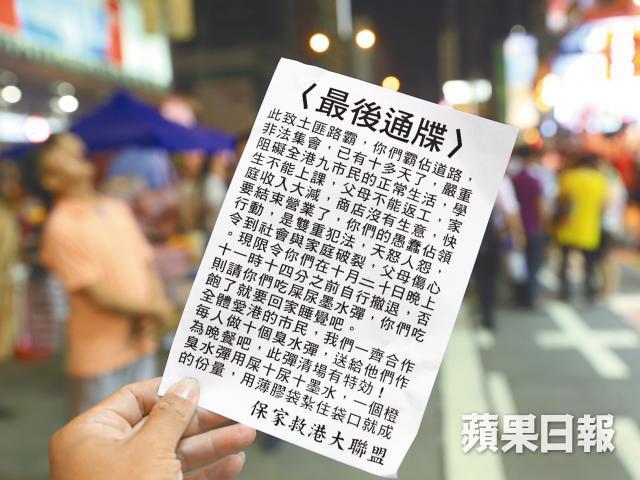 〈最後通牒〉
此致土匪路霸，你們霸佔道路，
非法集會，已有十多天了，嚴重
阻礙全港九市民的正常生活，學
生不能上課，父母不能返工，家
庭收入大減，商店沒有生意，快
要結束營業了，你們的愚蠢佔領
行動，是雙重犯法，天怒人怨，
令到社會與家庭破裂，父母傷心
。現限令你們在十月二十日晚上
十一時十四分之前自行撤退，否
則請你們吃屎尿墨水彈，你們吃
飽了就要回家睡覺吧。
全體愛港的市民，我們一齊合作
每人做十個臭水彈，送給他們作
為晚餐吧，此彈清場有特效！
臭水彈用屎十尿十墨水，一個橙
的份量，用薄膠袋紮住袋口就成
保家救港大聯盟
蘋果日報